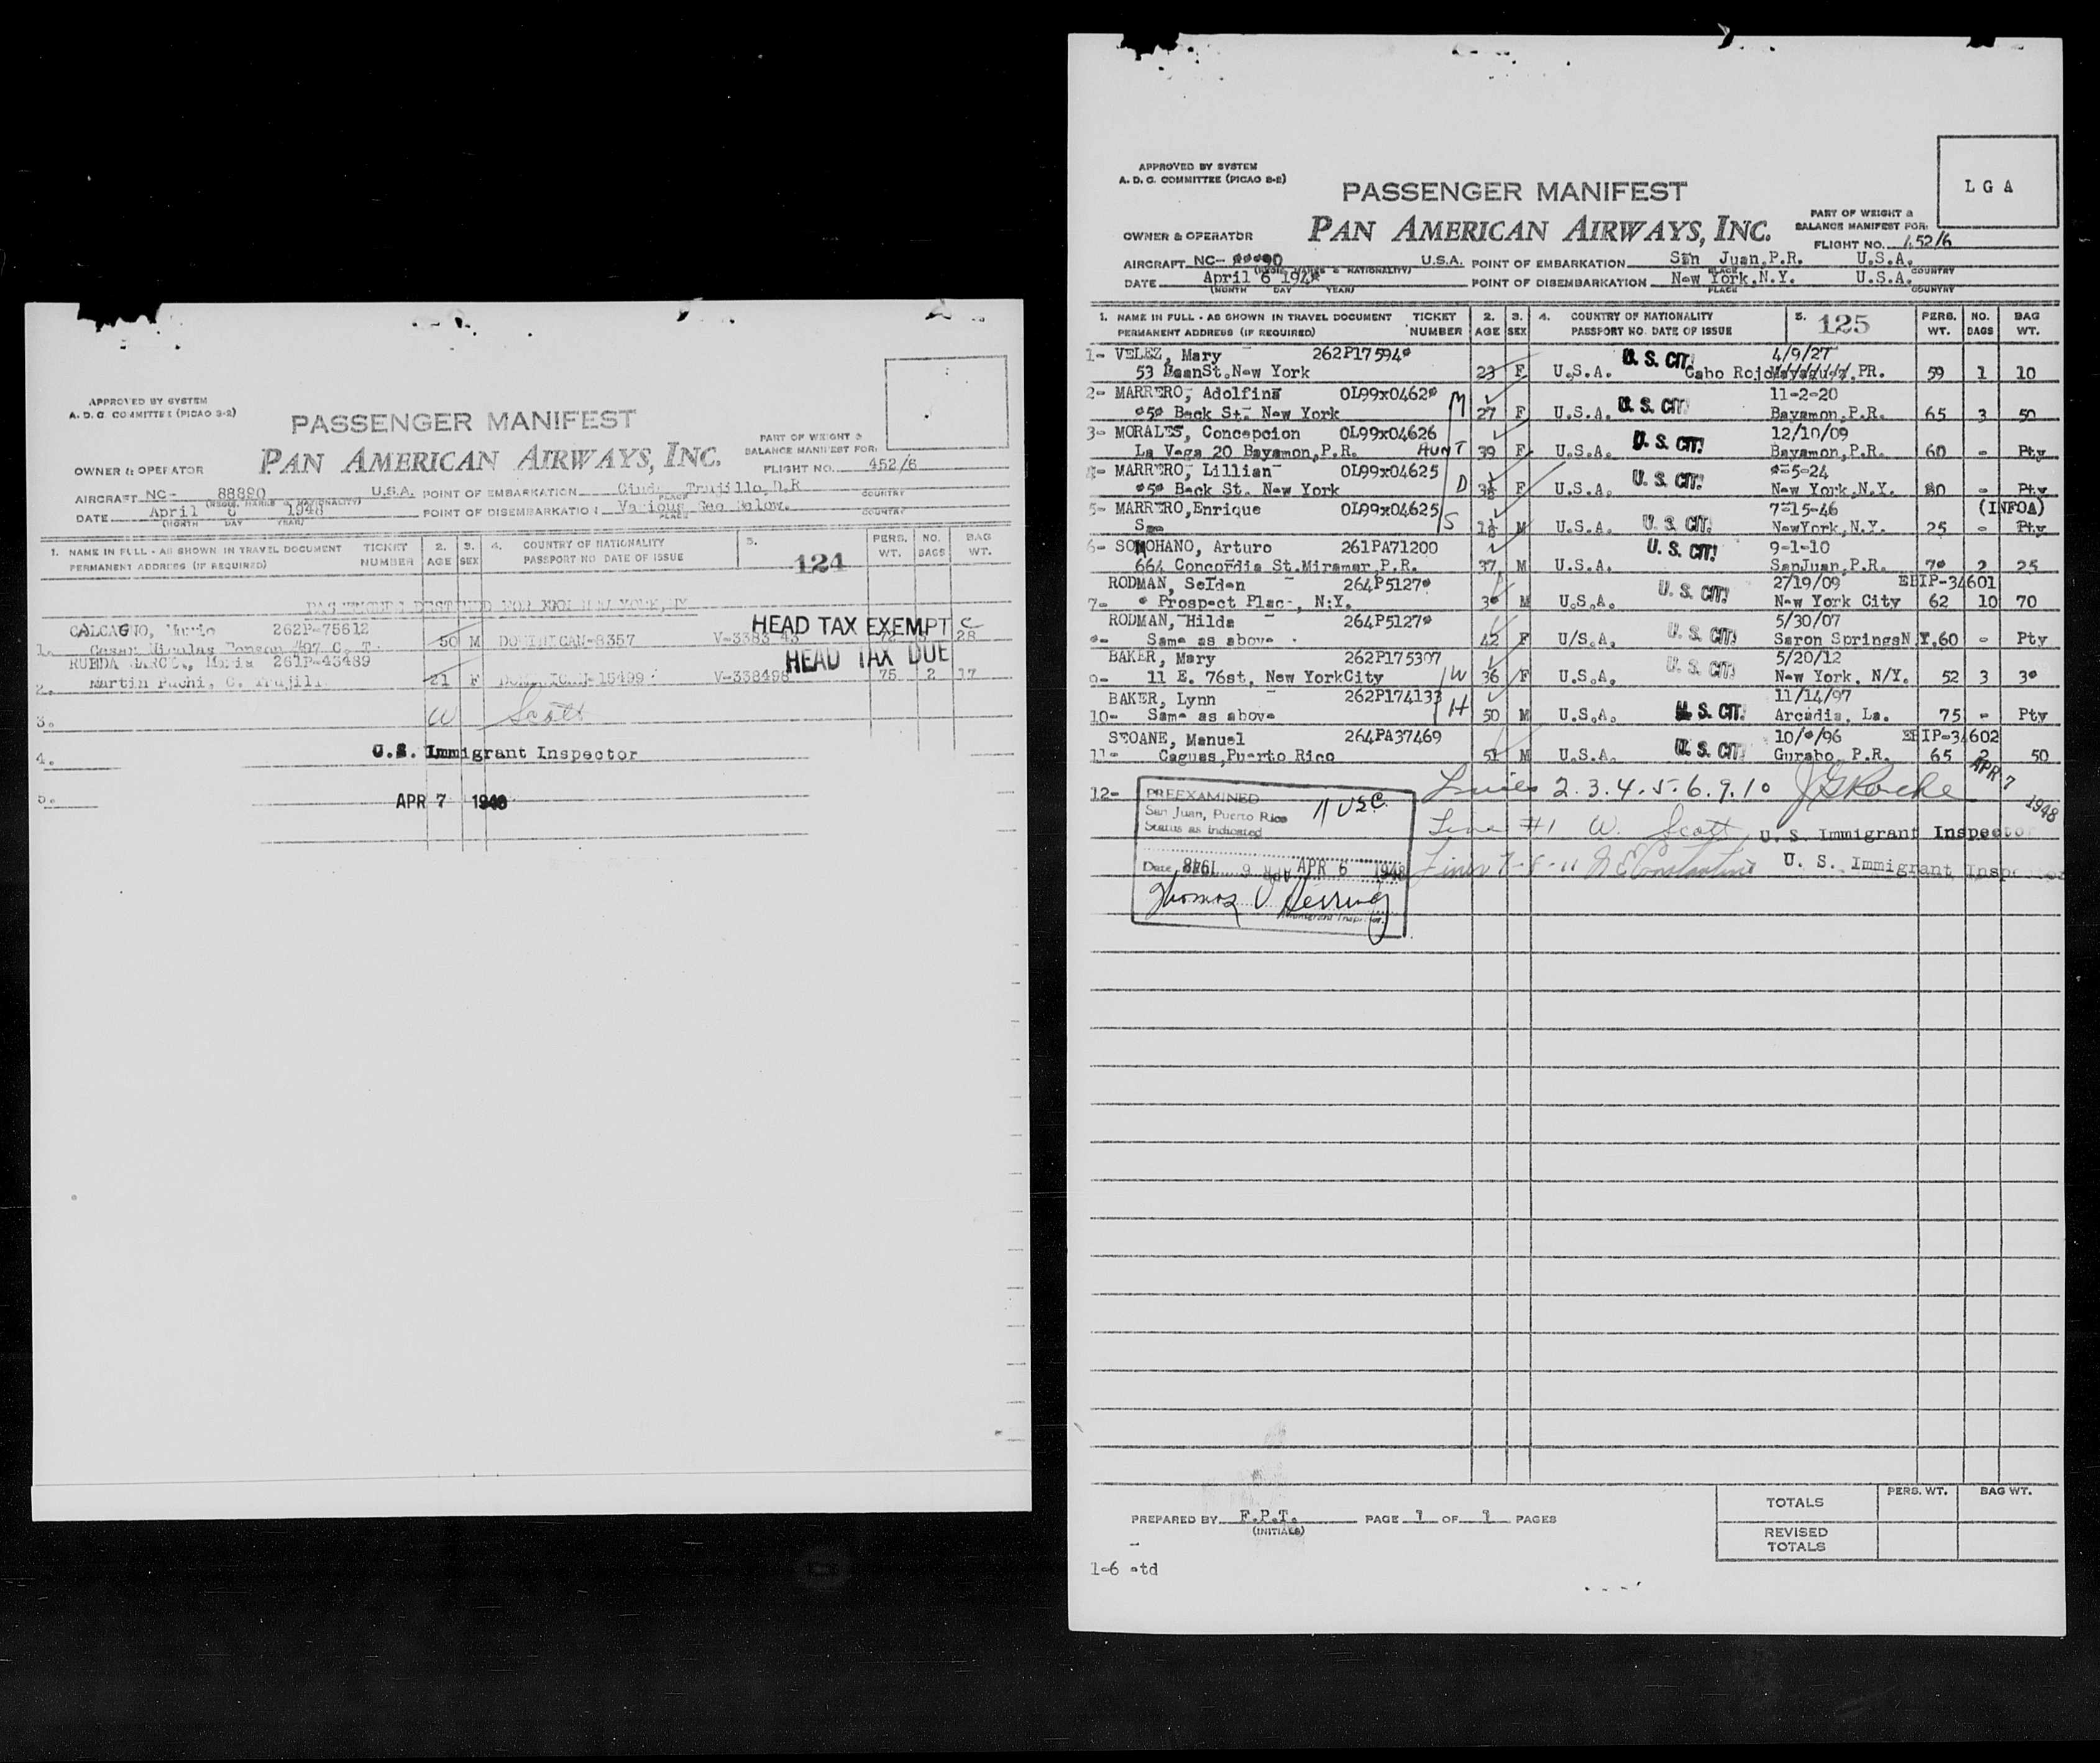 APPROVED BY SYSTEM
A. D. C. COMMITTEE (PICAO 3-2)
PASSENGER MANIFEST
PAN AMERICAN AIRWAYS, INC.
OWNER & OPERATOR
PART OF WEIGHT &
BALANCE MANIFEST FOR:
FLIGHT NO. 452/6
AIRCRAFT NC- 88890 U.S.A. POINT OF EMBARKATION Trujillo, D.R
PLACE COUNTRY
DATE April 6 1948 POINT OF DISEMBARKATION Various See Below.
(MONTH DAY YEAR) PLACE COUNTRY
1. NAME IN FULL - AS SHOWN IN TRAVEL DOCUMENT TICKET 2. 3. 4. COUNTRY OF NATIONALITY 5. 124 PERS. NO. BAG
PERMANENT ADDRESS (IF REQUIRED) NUMBER AGE SEX PASSPORT NO DATE OF ISSUE WT. BAGS WT.
CALCAGNO, Mario 262P-75612 HEAD TAX EXEMPT C
1. Cesar Nicolas Penson 50 M DOMINICAN-8357 V-3383 43 72 28
RUEDA Maria 261P-43489 HEAD TAX DUE
2. Martin Puchi, C. 21 F V-338498 75 2 17
3. W Scott
4. U.S. Immigrant Inspector
5. APR 7 1948
LGA
APPROVED BY SYSTEM
A. D. C. COMMITTEE (PICAO 3-2)
PASSENGER MANIFEST
PAN AMERICAN AIRWAYS, INC.
OWNER & OPERATOR
PART OF WEIGHT &
BALANCE MANIFEST FOR:
FLIGHT NO. 452/6
AIRCRAFT NC- U.S.A. POINT OF EMBARKATION San Juan, P.R. U.S.A.
PLACE COUNTRY
DATE April 6 POINT OF DISEMBARKATION New York, N.Y. U.S.A.
(MONTH DAY YEAR) PLACE COUNTRY
1. NAME IN FULL - AS SHOWN IN TRAVEL DOCUMENT TICKET 2. 3. 4. COUNTRY OF NATIONALITY 5. 125 PERS. NO. BAG
PERMANENT ADDRESS (IF REQUIRED) NUMBER AGE SEX PASSPORT NO. DATE OF ISSUE WT. BAGS WT.
1- VELEZ, Mary 262P17594 U. S. CIT. 4/9/27
53 St. New York 23 F U.S.A. Cabo Rojo PR. 59 1 10
2- MARRERO, Adolfina 0L99x0462 M 11-2-20
Beck St. New York 27 F U.S.A. U. S. CIT. Bayamon, P.R. 65 3 50
3- MORALES, Concepcion 0L99x04626 12/10/09
La Vega 20 Bayamon, P.R. AUNT 39 F U.S.A. U. S. CIT. Bayamon, P.R. 60 - Pty
4- MARRERO, Lillian 0L99x04625 -5-24
Beck St. New York D F U.S.A. U. S. CIT. New York, N.Y. - Pty
5- MARRERO, Enrique 0L99x04625 S 7-15-46 (INFOA)
M U.S.A. U. S. CIT. NewYork, N.Y. 25 - Pty
6- SOMOHANO, Arturo 261PA71200 U. S. CIT. 9-1-10
664 Concordia St. Miramar, P.R. 37 M U.S.A. SanJuan, P.R. 2 25
RODMAN, Selden 264P5127 2/19/09 EBIP-34601
7- Prospect N.Y. M U.S.A. U. S. CIT. New York City 62 10 70
RODMAN, Hilda 264P5127 5/30/07
Same as above 42 F U/S.A. U. S. CIT. Saron Springs N.Y. 60 - Pty
BAKER, Mary 262P175307 5/20/12
9- 11 E. 76st, New YorkCity W 36 F U.S.A. U. S. CIT. New York, N/Y. 52 3
BAKER, Lynn 262P174133 H 11/14/97
10- Same as above 50 M U.S.A. U. S. CIT. Arcadia, La. 75 - Pty
SEOANE, Manuel 264PA37469 EBIP-34602
11- Caguas, Puerto Rico 51 M U.S.A. U. S. CIT. Gurabo, P.R. 65 2 50
12- Lines 2.3.4.5.6.9.10 APR 7 1948
PREEXAMINED 11 USC
San Juan, Puerto Rico
Status as indicated
Line #1 W. Scott U.S. Immigrant Inspector
Lines 7-8-11 U. S. Immigrant Inspector
Date APR 6 1948
Immigrant Inspector
PREPARED BY F.P.T. PAGE 1 OF 1 PAGES
(INITIALS)
PERS. WT. BAG WT.
TOTALS
REVISED
TOTALS
1-6 etd